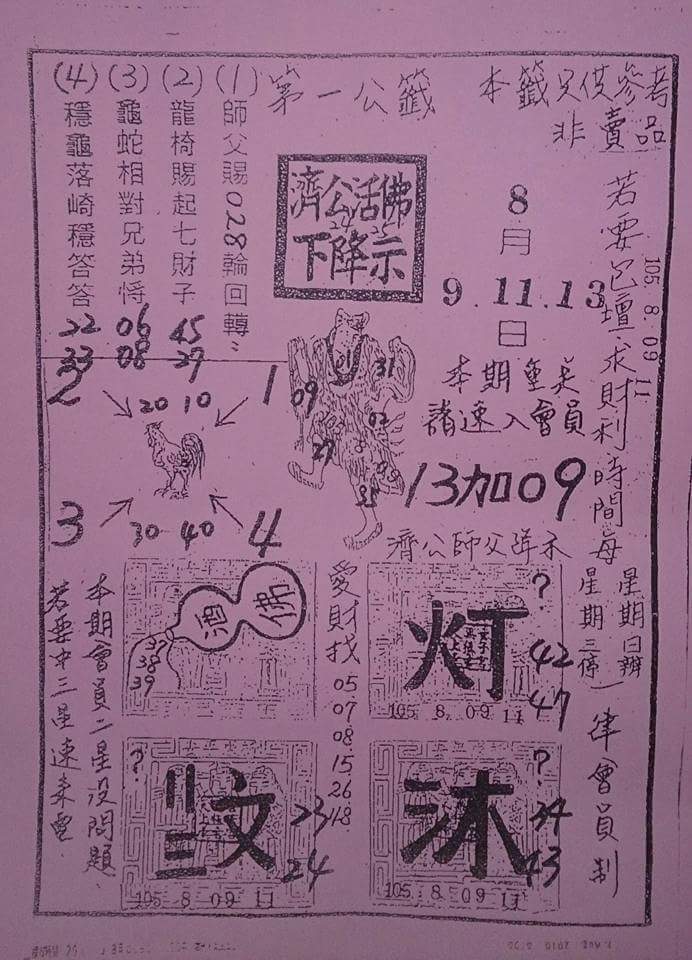 第一公籤
本籤只供參考
非賣品
(1)師父賜028輪回轉
(2)龍椅賜起七財子
45
27
(3)龜蛇相對兄弟情
06
08
(4)穩龜落崎穩答答
22
33
濟公活佛
下降示
8
月
9.11.13
日
105 8. 09 11
若要包壇求財利時間每
星期日辦
星期三停
一律會員制
本期重美
請速入會員
13加09
濟公師父降示
09
31
02
27
2
20 10
1
3
30 40
4
愛財找
05
07
08
15
26
18
酒佛
37
38
39
灯
?
42
47
105. 8. 09 11
本期會員二星沒問題
若要中三星速來電
?
文
23
24
105 8 09 11
沐
?
34
43
105. 8. 09 11